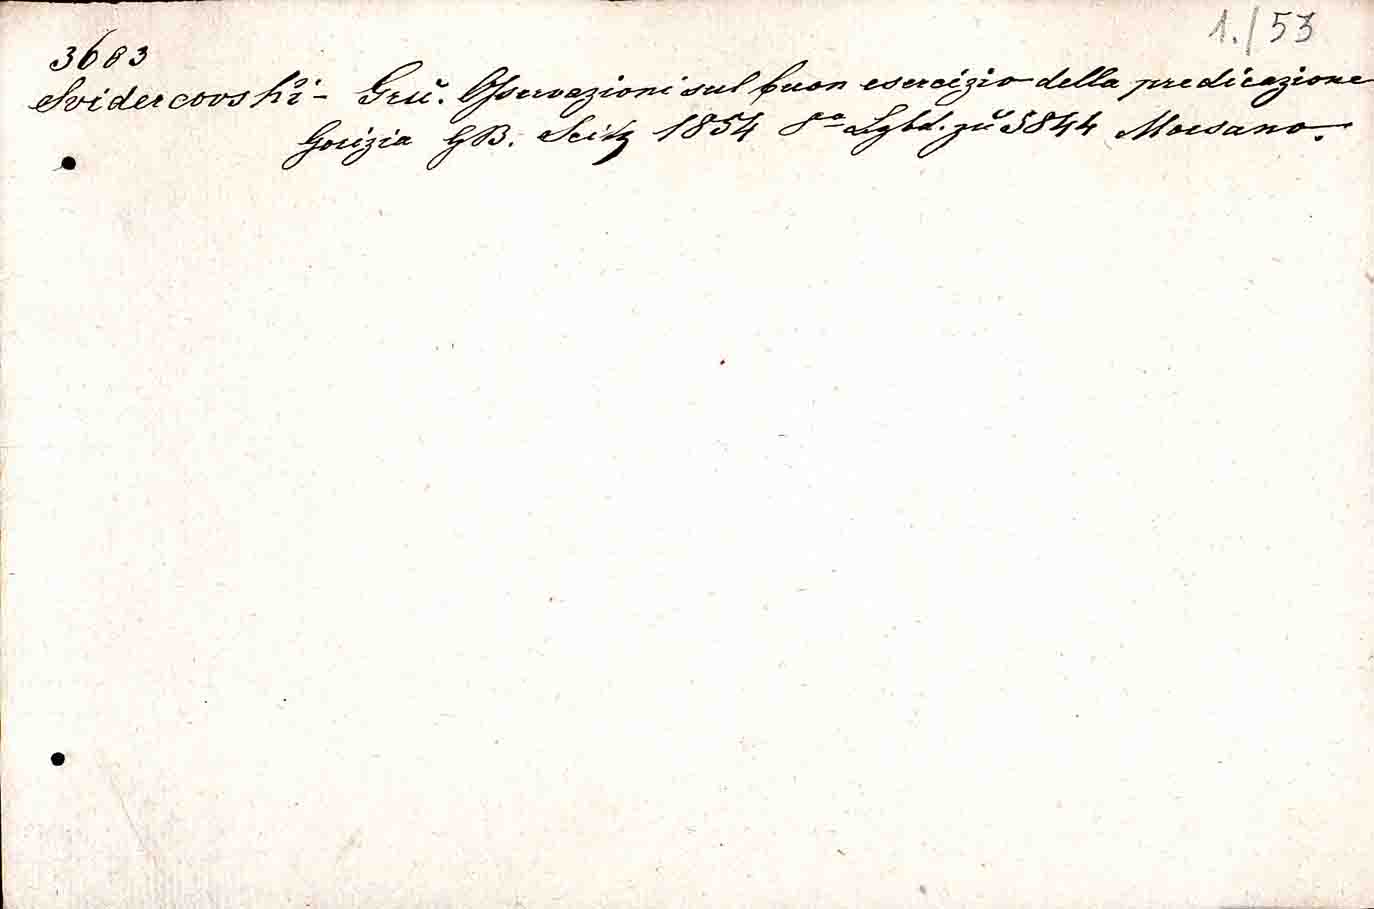 1./53
3683
Svidercovski - Gru. Osservazioni sul buon esercizio della predicazione
Gorizia GB. Seitz 1854 8° Lgbd. zu 5844 Morsano.